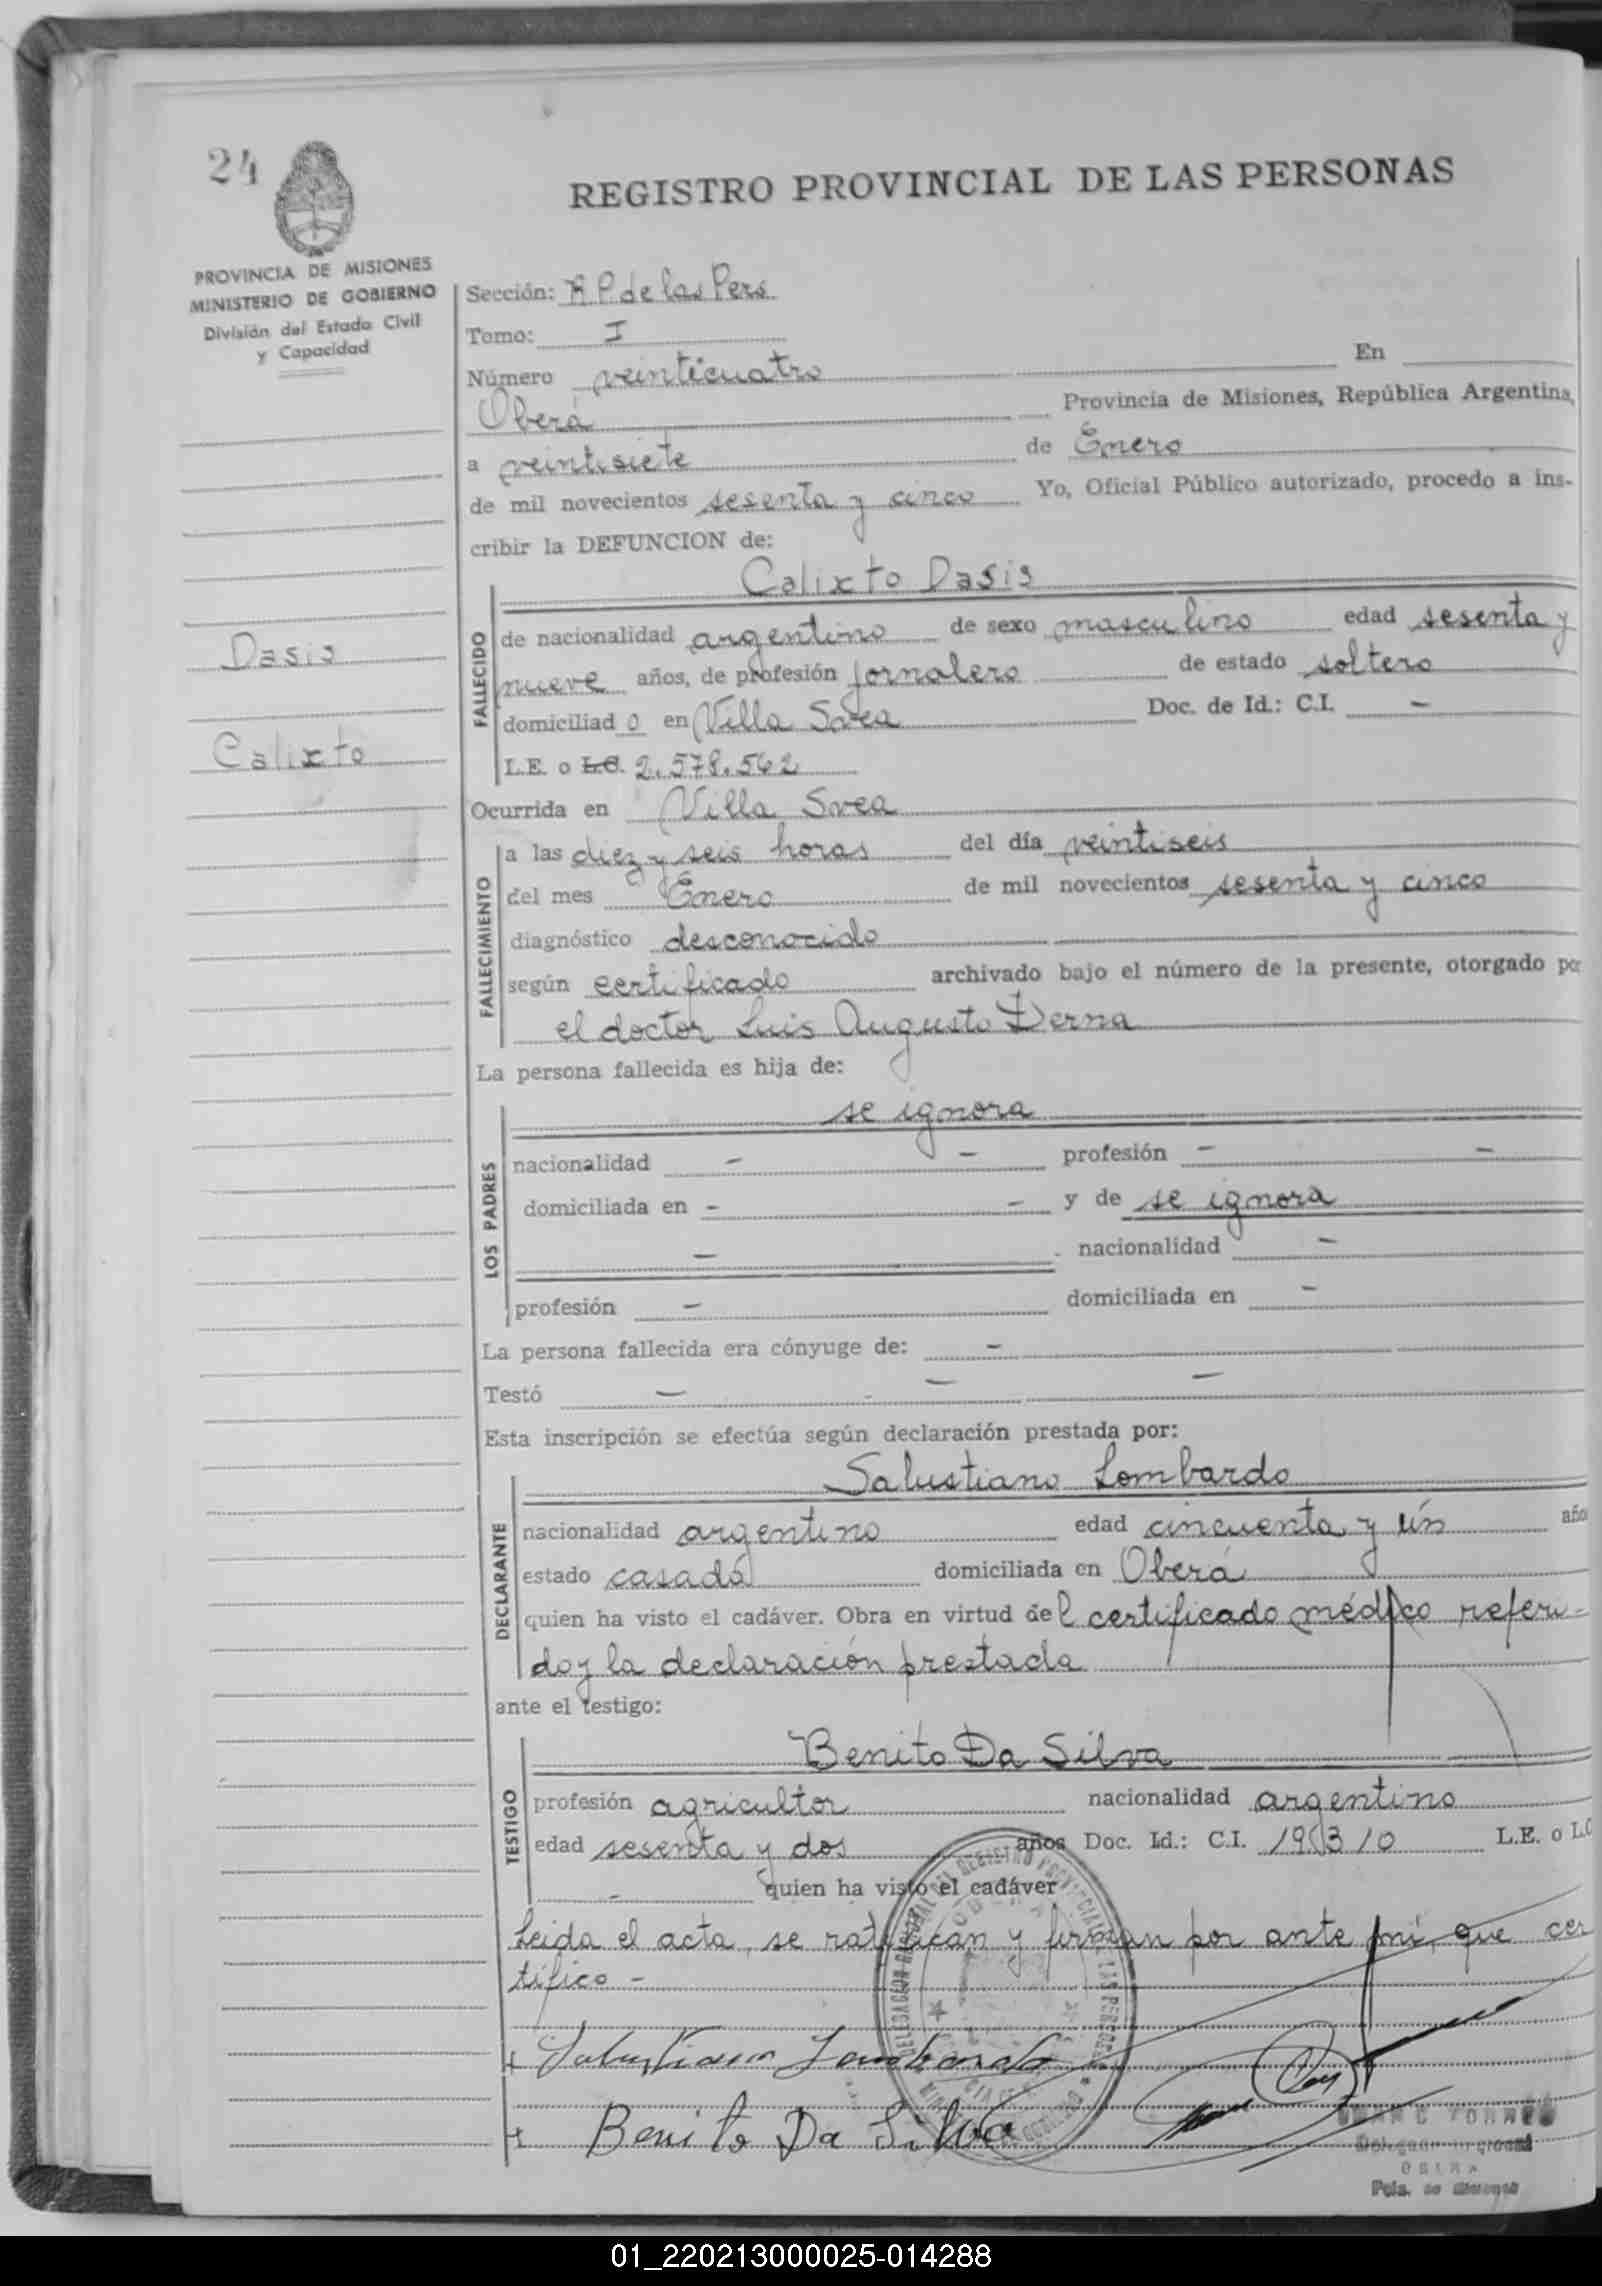 24
REGISTRO PROVINCIAL DE LAS PERSONAS
PROVINCIA DE MISIONES
MINISTERIO DE GOBIERNO
División del Estado Civil
y Capacidad
Sección: R.P. de las Pers.
Tomo: I
Número veinticuatro En
Oberá Provincia de Misiones, República Argentina,
a veintisiete de Enero
de mil novecientos sesenta y cinco Yo, Oficial Público autorizado, procedo a ins-
cribir la DEFUNCION de:
Calixto Dasis
Dasis
Calixto
FALLECIDO
de nacionalidad argentino de sexo masculino edad sesenta y
nueve años, de profesión jornalero de estado soltero
domiciliad o en Villa Svea Doc. de Id.: C.I. -
L.E. o L.C. 2.578.562
Ocurrida en Villa Svea
FALLECIMIENTO
a las diez y seis horas del día veintiseis
del mes Enero de mil novecientos sesenta y cinco
diagnóstico desconocido
según certificado archivado bajo el número de la presente, otorgado por
el doctor Luis Augusto Derna
La persona fallecida es hija de:
LOS PADRES
se ignora
nacionalidad - - profesión - -
domiciliada en - - y de se ignora
- nacionalidad -
profesión - domiciliada en -
La persona fallecida era cónyuge de: -
Testó - - -
Esta inscripción se efectúa según declaración prestada por:
DECLARANTE
Salustiano Lombardo
nacionalidad argentino edad cincuenta y ún año
estado casado domiciliada en Oberá
quien ha visto el cadáver. Obra en virtud del certificado médico referi-
do y la declaración prestada
ante el testigo:
TESTIGO
Benito Da Silva
profesión agricultor nacionalidad argentino
edad sesenta y dos años Doc. Id.: C.I. L.E. o L.C
- quien ha visto el cadáver
Leida el acta, se ratifican y firman por ante mí, que cer
tifico -
Salustiano Lombardo
Benito Da Silva
OBERA
Pcia. de Misiones
01_220213000025-014288